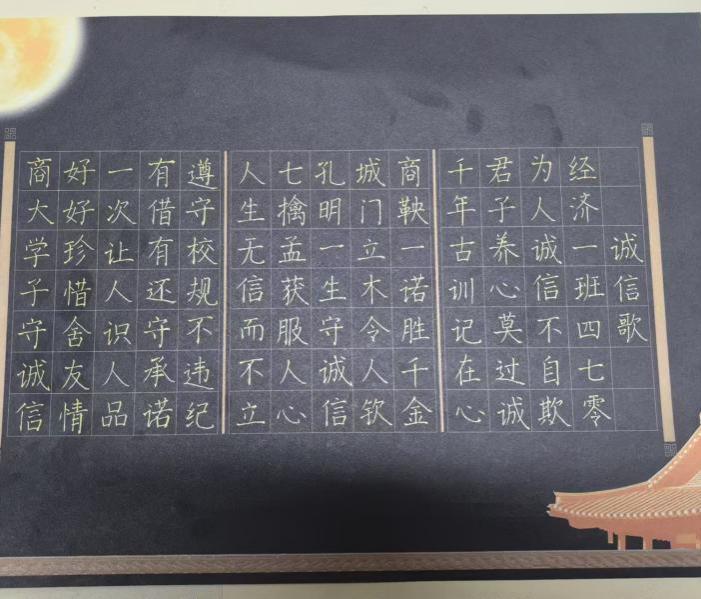 诚信歌
经济一班四七零
为人诚信不自欺
君子养心莫过诚
千年古训记在心
商鞅一诺胜千金
城门立木令人钦
孔明一生守诚信
七擒孟获服人心
人生无信而不立
遵守校规不违纪
有借有还守承诺
一次让人识人品
好好珍惜舍友情
商大学子守诚信